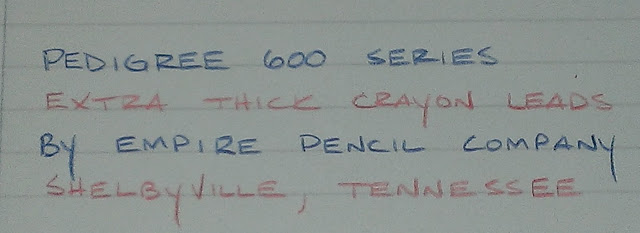 PEDIGREE 600 SERIES
EXTRA THICK CRAYON LEADS
By EMPIRE PENCIL COMPANY
SHELBYVILLE, TENNESSEE